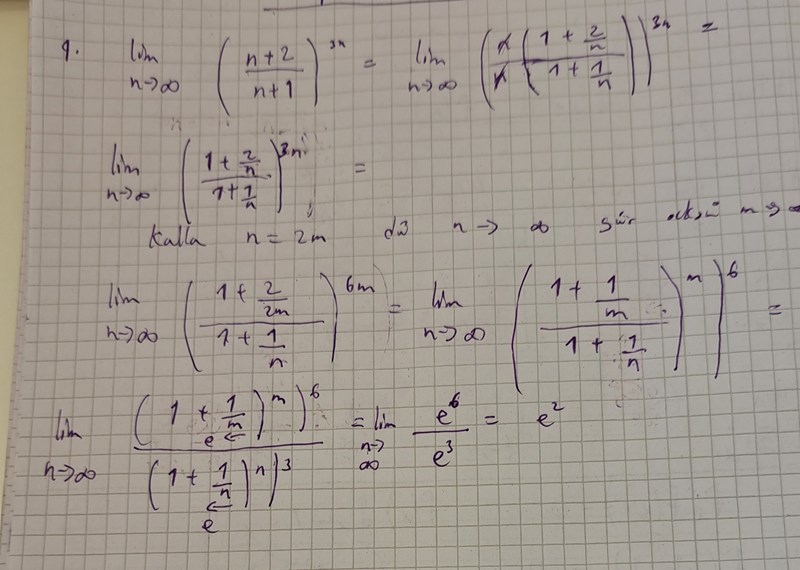 9. lim n→∞ ( (n+2)/(n+1) )^3n = lim n→∞ ( n(1 + 2/n) / n(1 + 1/n) )^3n =
lim n→∞ ( (1 + 2/n) / (1 + 1/n) )^3n =
Kalla n = 2m då n → ∞ går också m → ∞
lim n→∞ ( (1 + 2/2m) / (1 + 1/n) )^6m = lim n→∞ ( ( (1 + 1/m) / (1 + 1/n) )^m )^6 =
lim n→∞ ( (1 + 1/m)^m )^6 / ( (1 + 1/n)^n )^3 = lim n→∞ e^6 / e^3 = e^2
e ←
e ←